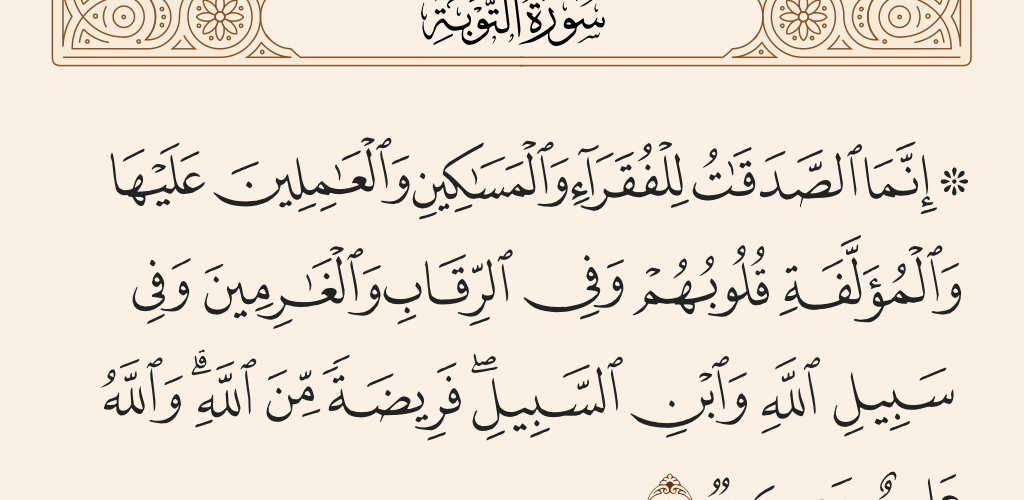 سورة التوبة
۞ إِنَّمَا ٱلصَّدَقَٰتُ لِلْفُقَرَآءِ وَٱلْمَسَٰكِينِ وَٱلْعَٰمِلِينَ عَلَيْهَا
وَٱلْمُؤَلَّفَةِ قُلُوبُهُمْ وَفِى ٱلرِّقَابِ وَٱلْغَٰرِمِينَ وَفِى
سَبِيلِ ٱللَّهِ وَٱبْنِ ٱلسَّبِيلِ ۖ فَرِيضَةً مِّنَ ٱللَّهِ ۗ وَٱللَّهُ